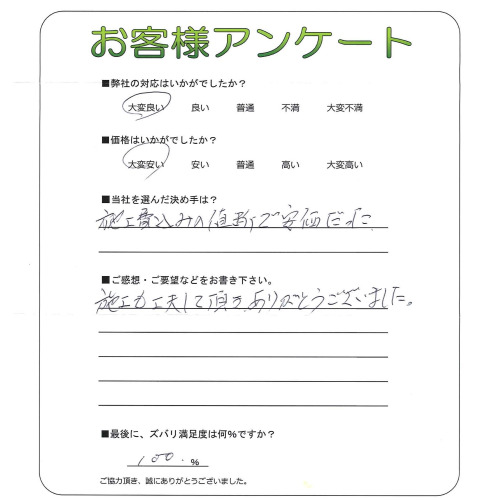 お客様アンケート
■弊社の対応はいかがでしたか？
大変良い 良い 普通 不満 大変不満
■価格はいかがでしたか？
大変安い 安い 普通 高い 大変高い
■当社を選んだ決め手は？
施工費込みの値段で安価だった。
■ご感想・ご要望などをお書き下さい。
施工も工夫して頂き、ありがとうございました。
■最後に、ズバリ満足度は何％ですか？
100. ％
ご協力頂き、誠にありがとうございました。